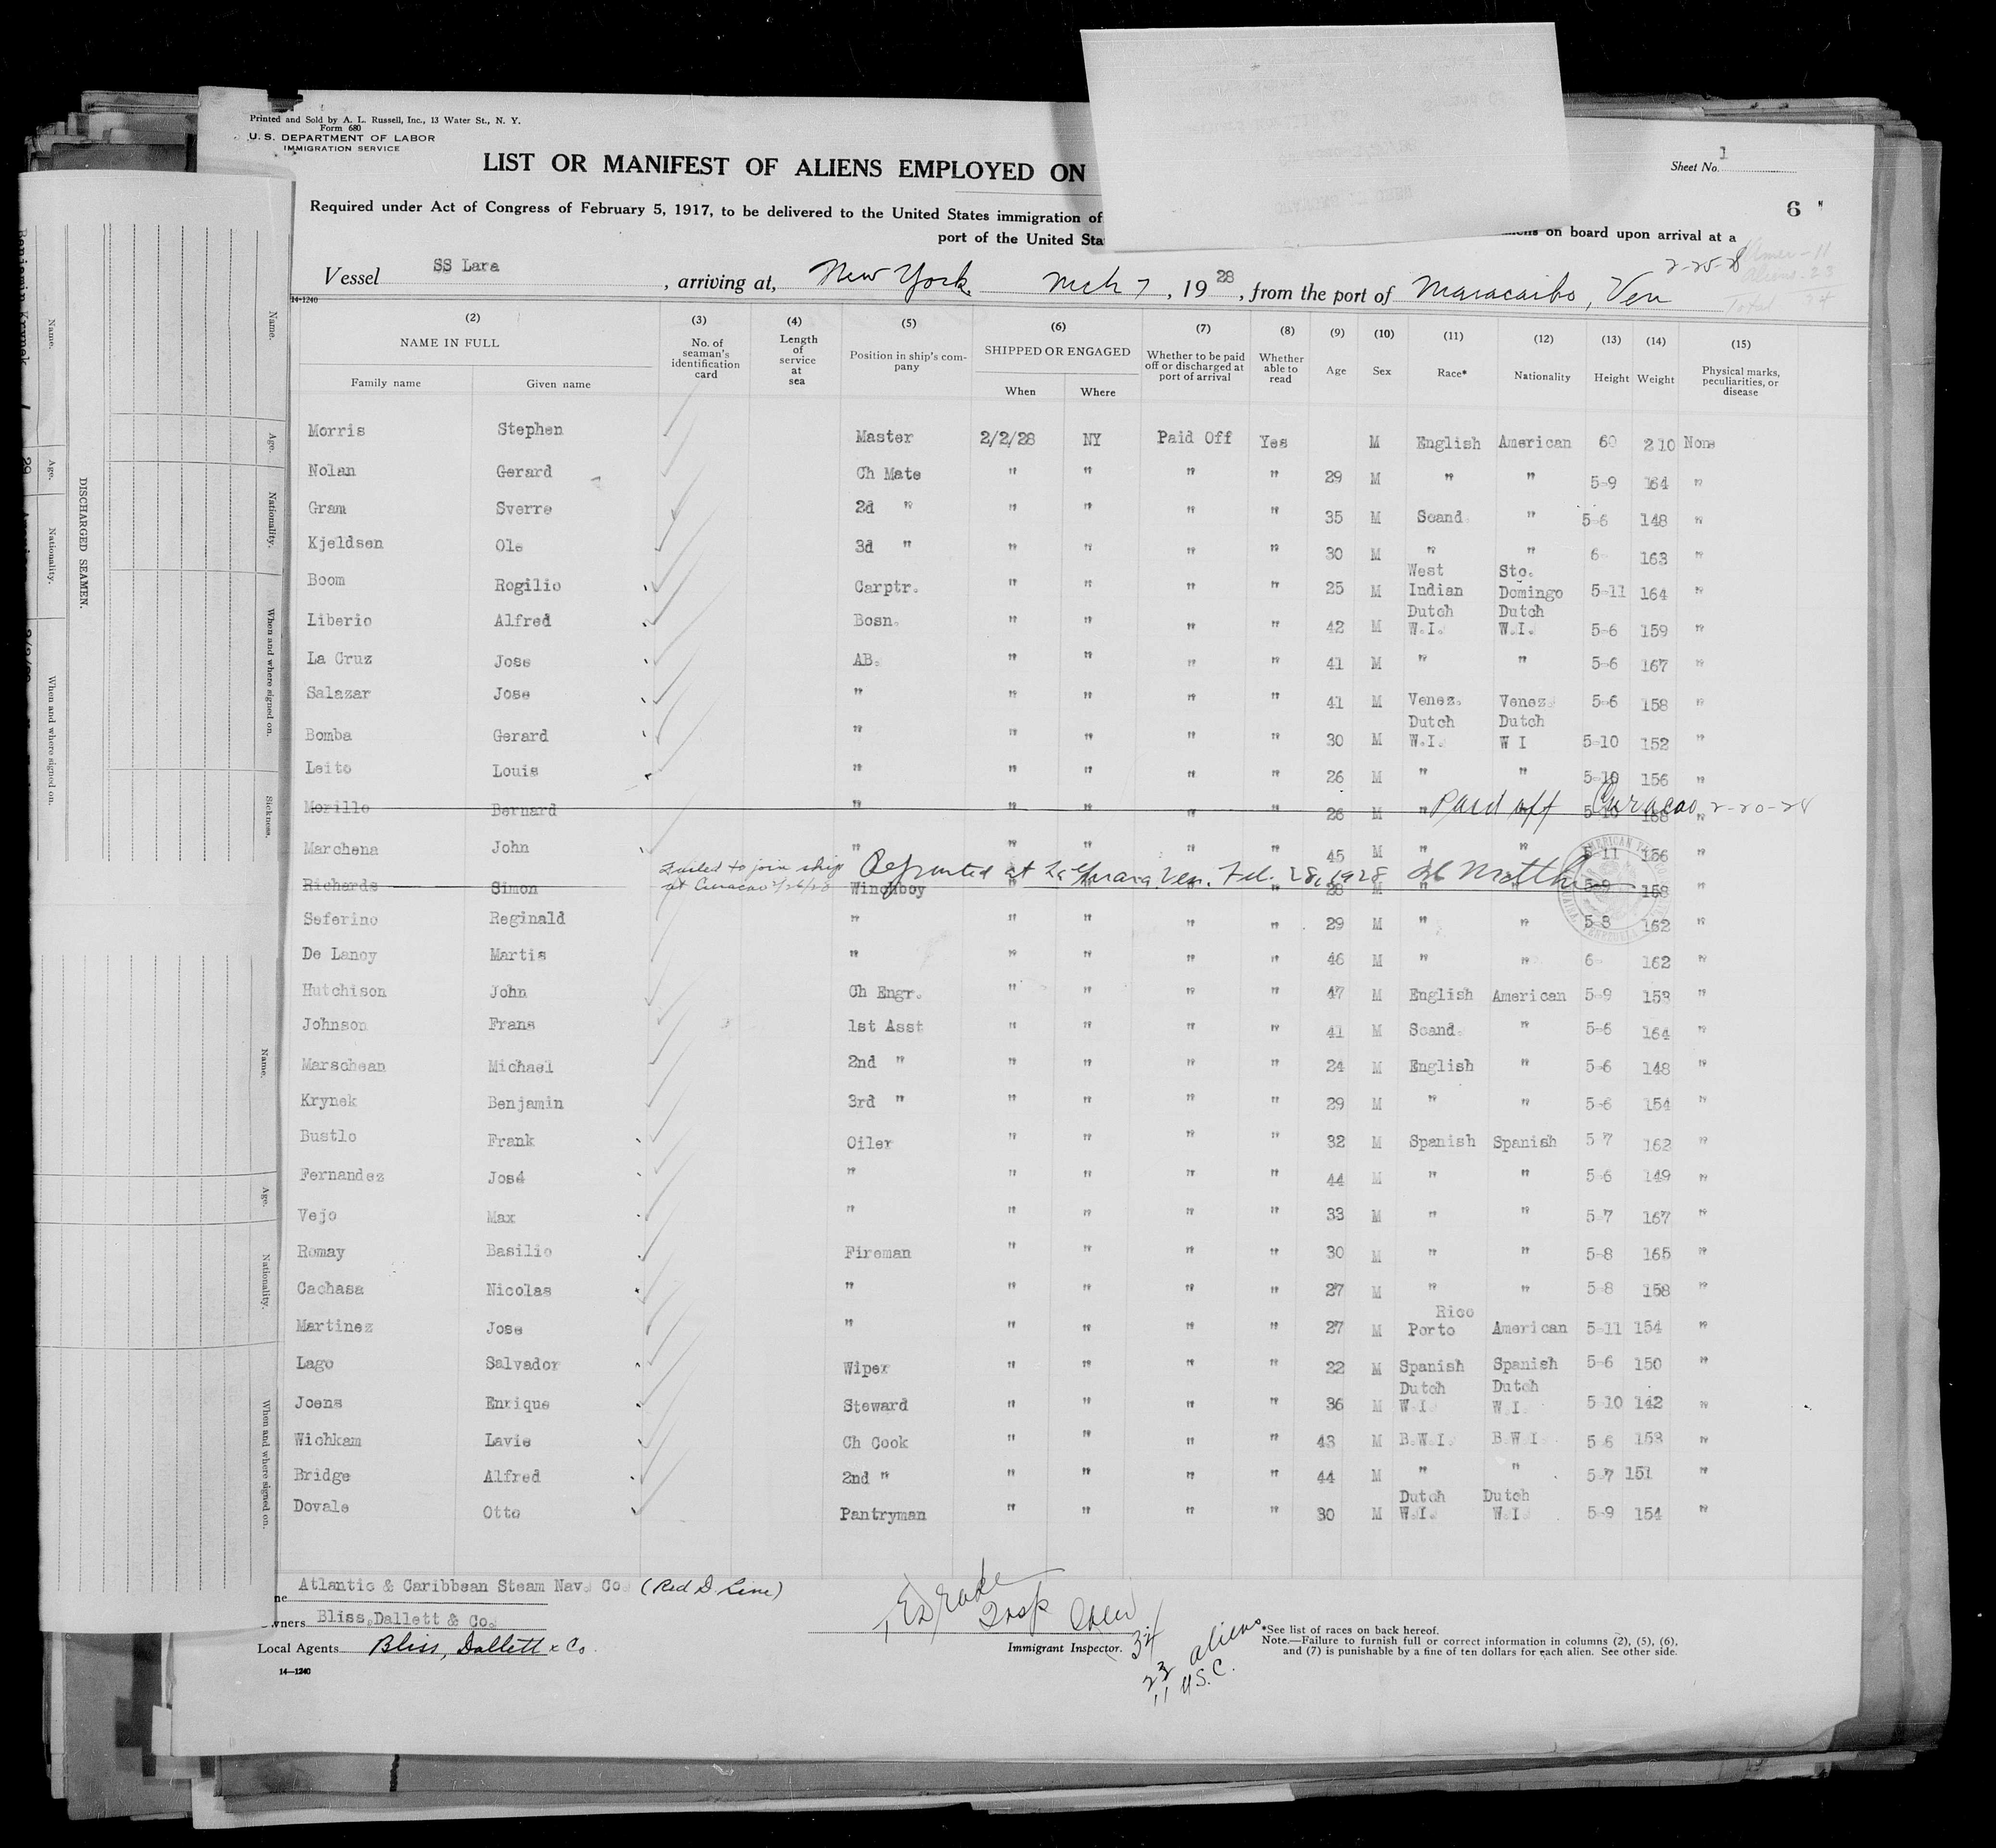 Printed and Sold by A. L. Russell, Inc., 13 Water St., N. Y.
Form 680
U. S. DEPARTMENT OF LABOR
IMMIGRATION SERVICE
Sheet No. 1
LIST OR MANIFEST OF ALIENS EMPLOYED ON
6
Required under Act of Congress of February 5, 1917, to be delivered to the United States immigration of
on board upon arrival at a
port of the United Sta
2-25-28
Aliens - 23
Total 34
Vessel SS Lara , arriving at, New York. Mch 7 , 19 28 , from the port of Maracaibo, Ven
14-1240
(2) (3) (4) (5) (6) (7) (8) (9) (10) (11) (12) (13) (14) (15)
NAME IN FULL No. of seaman's identification card Length of service at sea Position in ship's company SHIPPED OR ENGAGED Whether to be paid off or discharged at port of arrival Whether able to read Age Sex Race* Nationality Height Weight Physical marks, peculiarities, or disease
Family name Given name When Where
Morris Stephen Master 2/2/28 NY Paid Off Yes M English American 60 210 None
Nolan Gerard Ch Mate " " " " 29 M " " 5-9 164 "
Gram Sverre 2d " " " " " 35 M Scand. " 5-6 148 "
Kjeldsen Ole 3d " " " " " 30 M " " 6- 163 "
Boom Rogilio Carptr. " " " " 25 M West Indian Sto. Domingo 5-11 164 "
Liberio Alfred Bosn. " " " " 42 M Dutch W.I. Dutch W.I. 5-6 159 "
La Cruz Jose AB. " " " " 41 M " " 5-6 167 "
Salazar Jose " " " " " 41 M Venez. Venez. 5-6 158 "
Bomba Gerard " " " " " 30 M Dutch W.I. Dutch W I 5-10 152 "
Leito Louis " " " " " 26 M " " 5-10 156 "
Morillo Bernard " " " " " 26 M " " 5-10 168 "
Paid off Curacao 2-20-28
Marchena John " " " " " 45 M " " 5-11 156 "
Failed to join ship at Curacao 2/26/28
Richards Simon Winchboy " " 28 M " " 5-9 158
Feb. 28, 1928
Seferino Reginald " " " " " 29 M " " 5-8 162 "
De Lanoy Martis " " " " " 46 M " " 6- 162 "
Hutchison John Ch Engr. " " " " 47 M English American 5-9 153 "
Johnson Frans 1st Asst " " " " 41 M Scand. " 5-6 164 "
Marschean Michael 2nd " " " " " 24 M English " 5-6 148 "
Krynek Benjamin 3rd " " " " " 29 M " " 5-6 154 "
Bustlo Frank Oiler " " " " 32 M Spanish Spanish 5 7 162 "
Fernandez José " " " " " 44 M " " 5-6 149 "
Vejo Max " " " " " 33 M " " 5-7 167 "
Romay Basilio Fireman " " " " 30 M " " 5-8 165 "
Cachasa Nicolas " " " " " 27 M " " 5-8 158 "
Martinez Jose " " " " " 27 M Rico Porto American 5-11 154 "
Lago Salvador Wiper " " " " 22 M Spanish Spanish 5-6 150 "
Joens Enrique Steward " " " " 36 M Dutch W.I. Dutch W.I. 5-10 142 "
Wichkam Lavie Ch Cook " " " " 43 M B.W.I. B.W.I. 5 6 153 "
Bridge Alfred 2nd " " " " " 44 M " " 5-7 151 "
Dovale Otto Pantryman " " " " 30 M Dutch W.I. Dutch W.I. 5-9 154 "
ne Atlantic & Caribbean Steam Nav. Co. (Red D. Line)
wners Bliss, Dallett & Co.
Local Agents Bliss, Dallett & Co.
14-1240
Immigrant Inspector.
34
23 aliens
11 U.S.C.
*See list of races on back hereof.
Note.—Failure to furnish full or correct information in columns (2), (5), (6),
and (7) is punishable by a fine of ten dollars for each alien. See other side.
DISCHARGED SEAMEN.
Name.
Age.
Nationality.
When and where signed on.
Name.
Age.
Nationality.
When and where signed on.
Sickness.
Name.
Age.
Nationality.
When and where signed on.
Benjamin Krynek
29